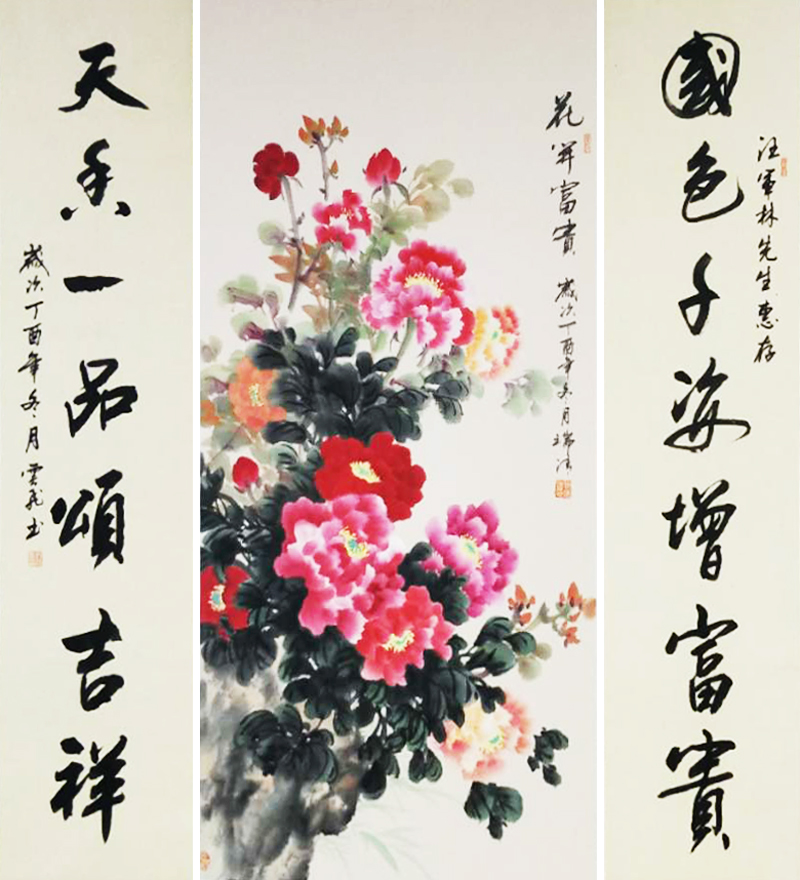 國色千姿增富貴
汪軍林先生惠存
花开富貴
歲次丁酉年冬月瑞
天香一品頌吉祥
歲次丁酉年冬月雲飛书